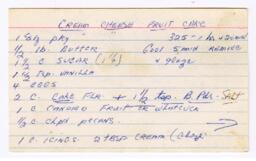 CREAM CHEESE FRUIT CAKE
1 8 oz pkg 325 - 1 hr
1/2 lb. BUTTER COOL 5 MIN REMOVE
1 1/2 C SUGAR (1 1/2)
1 1/2 tsp. VANILLA
4 EGGS
2 C. CAKE FLR. + 1 1/2 tsp. B. Pdr.
1 C CANDIED FRUIT
1/2 C. chpd pecans.
1 C. ICING. 2 TBSP CREAM